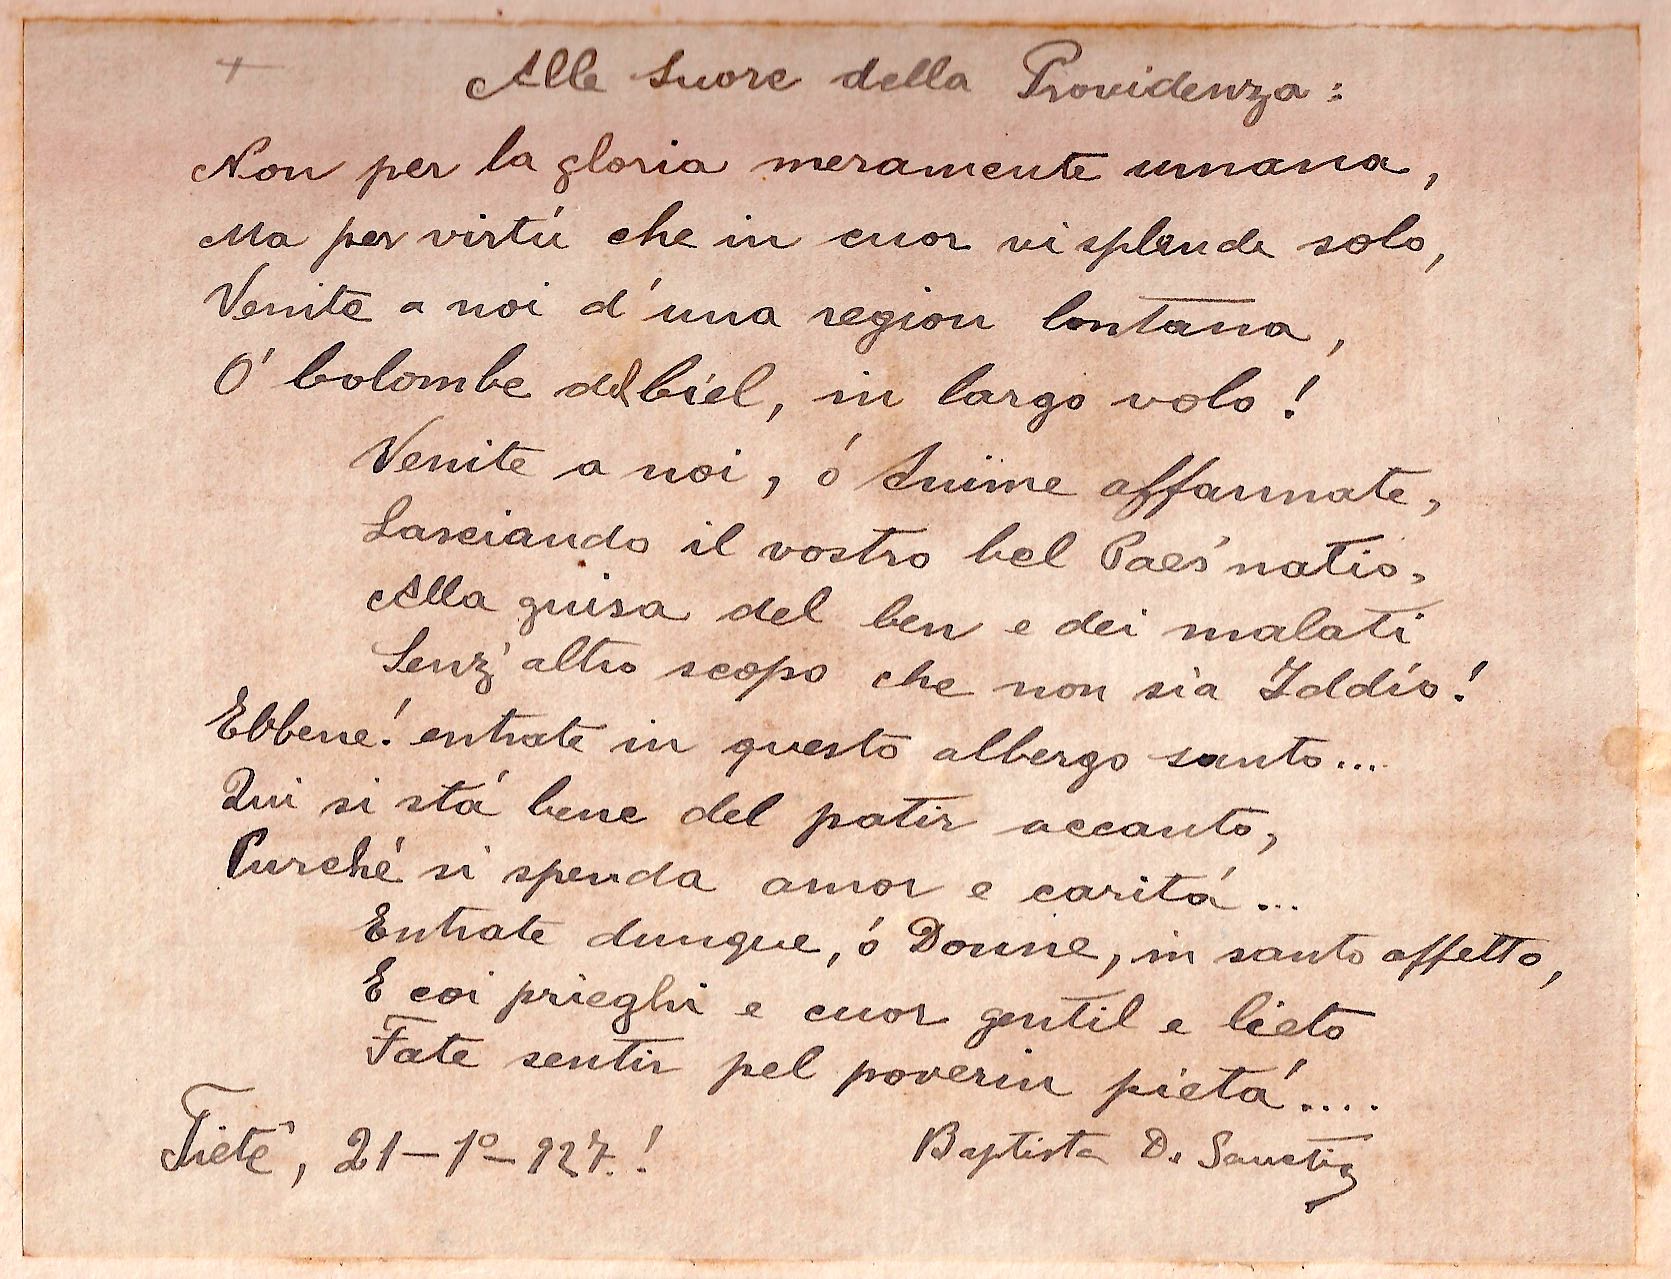 + Alle Suore della Providenza:
Non per la gloria meramente umana,
Ma per virtú che in cuor vi splende solo,
Venite a noi d'una region lontana,
O' Colombe del Ciel, in largo volo!
Venite a noi, ó affannate,
Lasciando il vostro bel Paes' natio,
Alla guisa del ben e dei malati
Senz' altro scopo che non sia Iddio!
Ebbene! entrate in questo albergo santo...
Qui si stá bene del patir accanto,
Purché si spenda amor e caritá...
Entrate dunque, ó Donne, in santo affetto,
E coi prieghi e cuor gentil e lieto
Fate sentir pel poverin pietá....
Tietê, 21-1º-927.!
Baptista D. Sanctis